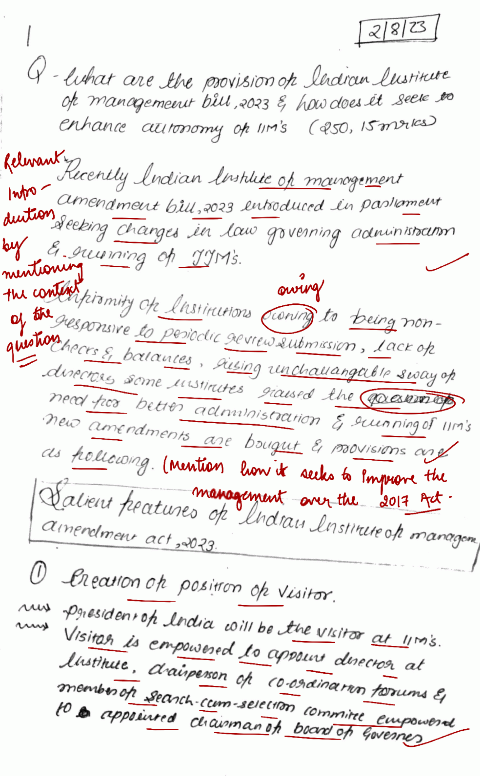 1
2/8/23
Q - What are the provision of Indian Institute
of management bill, 2023 & how does it seek to
enhance autonomy of IIM's (250, 15 mrks)
Relevant
Intro-
duction
by
mentioning
the context
of the
question
Recently Indian Institute of management
amendment bill, 2023 introduced in parliament
seeking changes in law governing administration
& running of IIM's.
owing
Infirmity of Institutions owning to being non-
responsive to periodic review submission, lack of
checks & balances, rising unchallangable sway of
directors, some institutes raised the
need for better administration & running of IIM's
new amendments are bought & provisions are
as following. (Mention how it seeks to improve the
management over the 2017 Act.
Salient features of Indian Institute of managem
amendment act, 2023.
① Creation of position of Visitor.
President of India will be the visitor at IIM's.
Visitor is empowered to appoint director at
Institute, chairperson of co-ordination forums &
member of search-cum-selection commitee empowered
to appointed chairman of board of Governes